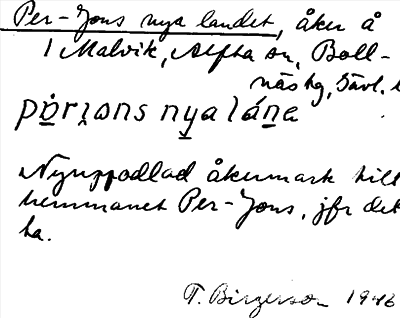 Per-Jons nya landet, åker å
1 Malvik, Alfta sn, Boll-
näs tg, Gävl. l
Nyuppodlad åkermark till
hemmanet Per-Jons, jfr det
ha.
T. Birgerson 1946